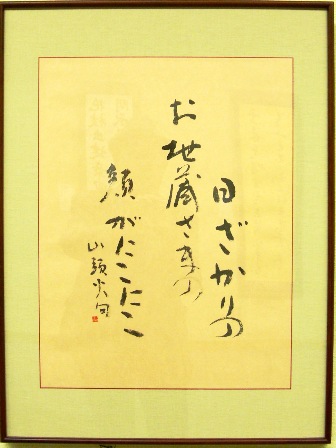 日ざかりの
お地蔵さまの
顔がにこにこ
山頭火句